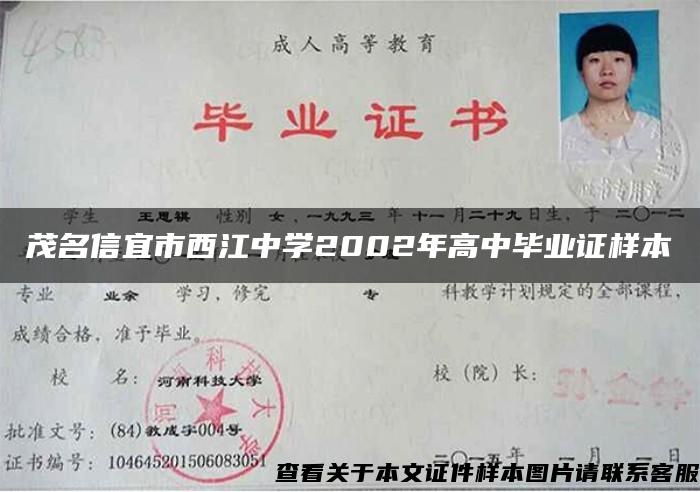 4583
成人高等教育
毕业证书
证书专用章
学生 王思祺 性别 女，一九九三年十一月二十九日生，于二〇一二
茂名信宜市西江中学2002年高中毕业证样本
专业 业余 学习，修完 专 科教学计划规定的全部课程，
成绩合格，准予毕业。
校 名：河南科技大学 校（院）长：
河南科技大学
批准文号：(84)教成字004号
证书编号：104645201506083051 二〇一五年 一月 一日
查看关于本文证件样本图片请联系客服